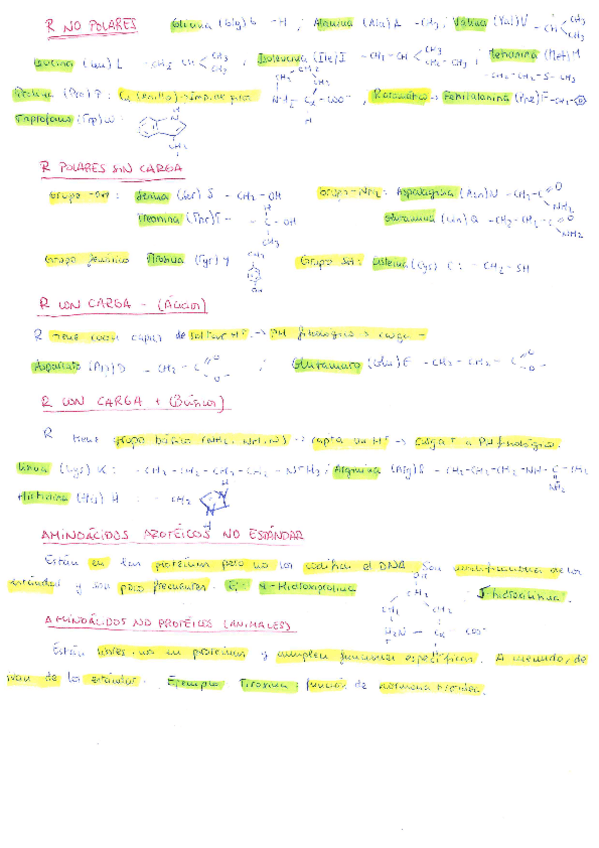 R NO POLARES Glicina (Gly) G -H ; Alanina (Ala) A -CH3 ; Valina (Val) V - CH CH3 CH3
Leucina (Leu) L -CH2 CH CH3 CH3 ; Isoleucina (Ile) I -CH2-CH CH3 CH2-CH3 ; Metionina (Met) M -CH2-CH2-S-CH3
Prolina (Pro) P : Cα (Anillo) CH2 CH2 CH2 NH2 - Cα - COO- H , R aromático → Fenilalanina (Phe) F -CH2-
Triptófano (Trp) W : H N CH2
R POLARES SIN CARGA
Grupo -OH : Serina (Ser) S -CH2-OH Grupo -NH2 : Asparagina (Asn) N -CH2-C O NH2
Treonina (Thr) T - H C - OH CH3 Glutamina (Gln) Q -CH2-CH2-C O NH2
Grupo fenólico Tirosina (Tyr) Y CH2 OH Grupo SH : Cisteína (Cys) C : - CH2-SH
R CON CARGA - (Ácidos)
R tiene capaz de soltar H+ → pH fisiológico → carga -
Aspartato (Asp) D -CH2-C O O- ; Glutamato (Glu) E -CH2-CH2-C O O-
R CON CARGA + (Básicos)
R tiene grupo básico (NH2, NH, N) → capta un H+ → carga + a pH fisiológico.
Lisina (Lys) K : -CH2-CH2-CH2-CH2-N+H3 ; Arginina (Arg) R -CH2-CH2-CH2-NH-C-NH2 NH2
Histidina (His) H : -CH2 H
AMINOÁCIDOS PROTÉICOS NO ESTÁNDAR
Están en las proteínas pero no los codifica el DNA. Son modificaciones de los
estándar y son poco frecuentes. Ej: 4-Hidroxiprolina OH CH2 CH2 H2N - Cα - COO- H ; 5 hidroxilisina.
AMINOÁCIDOS NO PROTÉICOS (ANIMALES)
Están libres, no en proteínas y cumplen funciones específicas. A menudo, de
ivan de los estándar. Ejemplo Tirosina : función de hormona tiroidea.